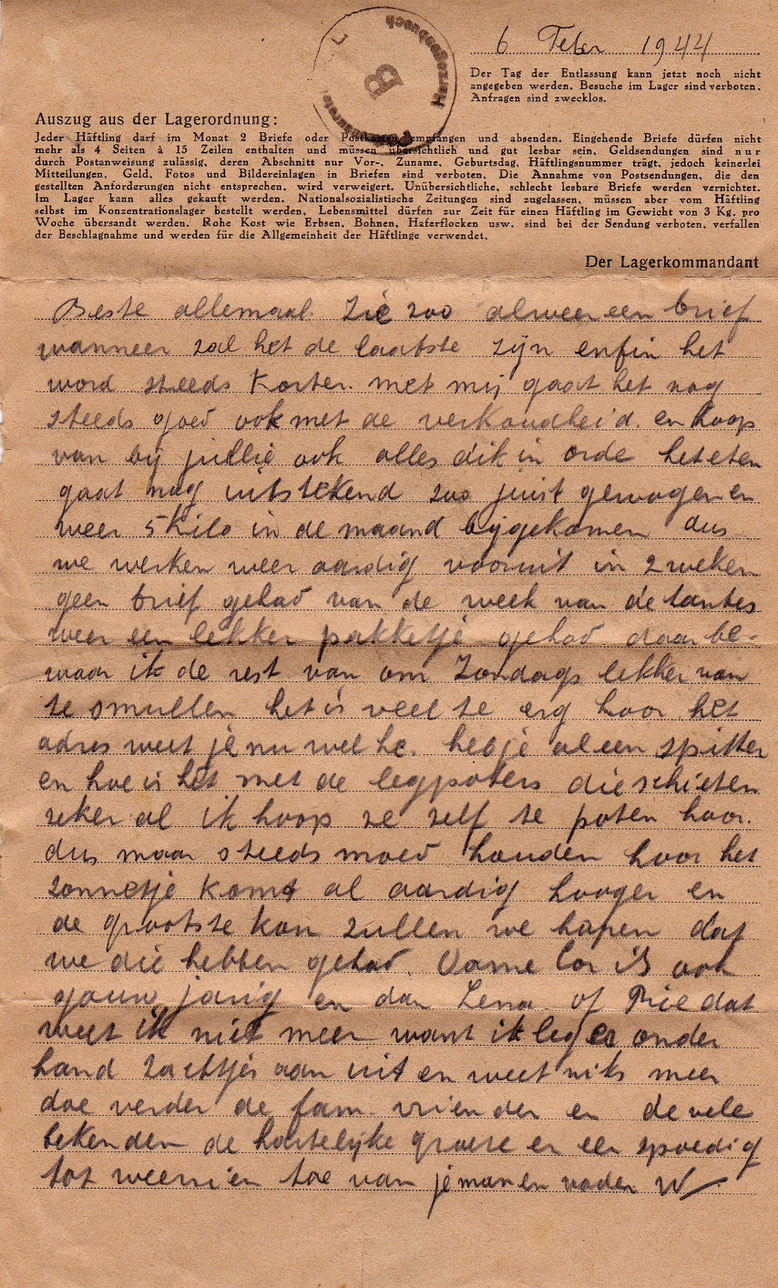 6 Febr 1944
Der Tag der Entlassung kann jetzt noch nicht
angegeben werden. Besuche im Lager sind verboten.
Anfragen sind zwecklos.
B
Herzogenbusch
Auszug aus der Lagerordnung:
Jeder Häftling darf im Monat 2 Briefe oder Postkarten empfangen und absenden. Eingehende Briefe dürfen nicht
mehr als 4 Seiten à 15 Zeilen enthalten und müssen übersichtlich und gut lesbar sein. Geldsendungen sind nur
durch Postanweisung zulässig, deren Abschnitt nur Vor-, Zuname, Geburtsdag, Häftlingsnummer trägt, jedoch keinerlei
Mitteilungen, Geld, Fotos und Bildereinlagen in Briefen sind verboten. Die Annahme von Postsendungen, die den
gestellten Anforderungen nicht entsprechen, wird verweigert. Unübersichtliche, schlecht lesbare Briefe werden vernichtet.
Im Lager kann alles gekauft werden. Nationalsozialistische Zeitungen sind zugelassen, müssen aber vom Häftling
selbst im Konzentrationslager bestellt werden, Lebensmittel dürfen zur Zeit für einen Häftling im Gewicht von 3 Kg. pro
Woche übersandt werden. Rohe Kost wie Erbsen, Bohnen, Haferflocken usw. sind bei der Sendung verboten, verfallen
der Beschlagnahme und werden für die Allgemeinheit der Häftlinge verwendet.
Der Lagerkommandant
Beste allemaal. Zie zoo alweer een brief
wanneer zal het de laatste zijn enfin het
word steeds korter. met mij gaat het nog
steeds goed ook met de verkoudheid. en hoop
van bij jullie ook alles dik in orde het eten
gaat nog uitstekend zoo juist gewogen en
weer 5 kilo in de maand bijgekomen dus
we werken weer aardig vooruit in 2 weken
geen brief gehad van de week van de tantes
weer een lekker pakketje gehad daar be-
waar ik de rest van om Zondags lekker van
te smullen het is veel te erg hoor het
adres weet je nu wel he. heb je al een spitter
en hoe is het met de legpoters die schieten
zeker al ik hoop ze zelf te poten hoor.
dus maar steeds moed houden hoor het
zonnetje komt al aardig hooger en
de grootste kou zullen we hopen dat
we die hebben gehad. Oome Cor is ook
gauw jarig en dan Lena of Rie dat
weet ik niet meer want ik leg er onder
hand zachtjes aan uit en weet niks meer
doe verder de fam. vrienden en de vele
bekenden de hartelijke groete en een spoedig
tot weerzien toe van je man en vader W